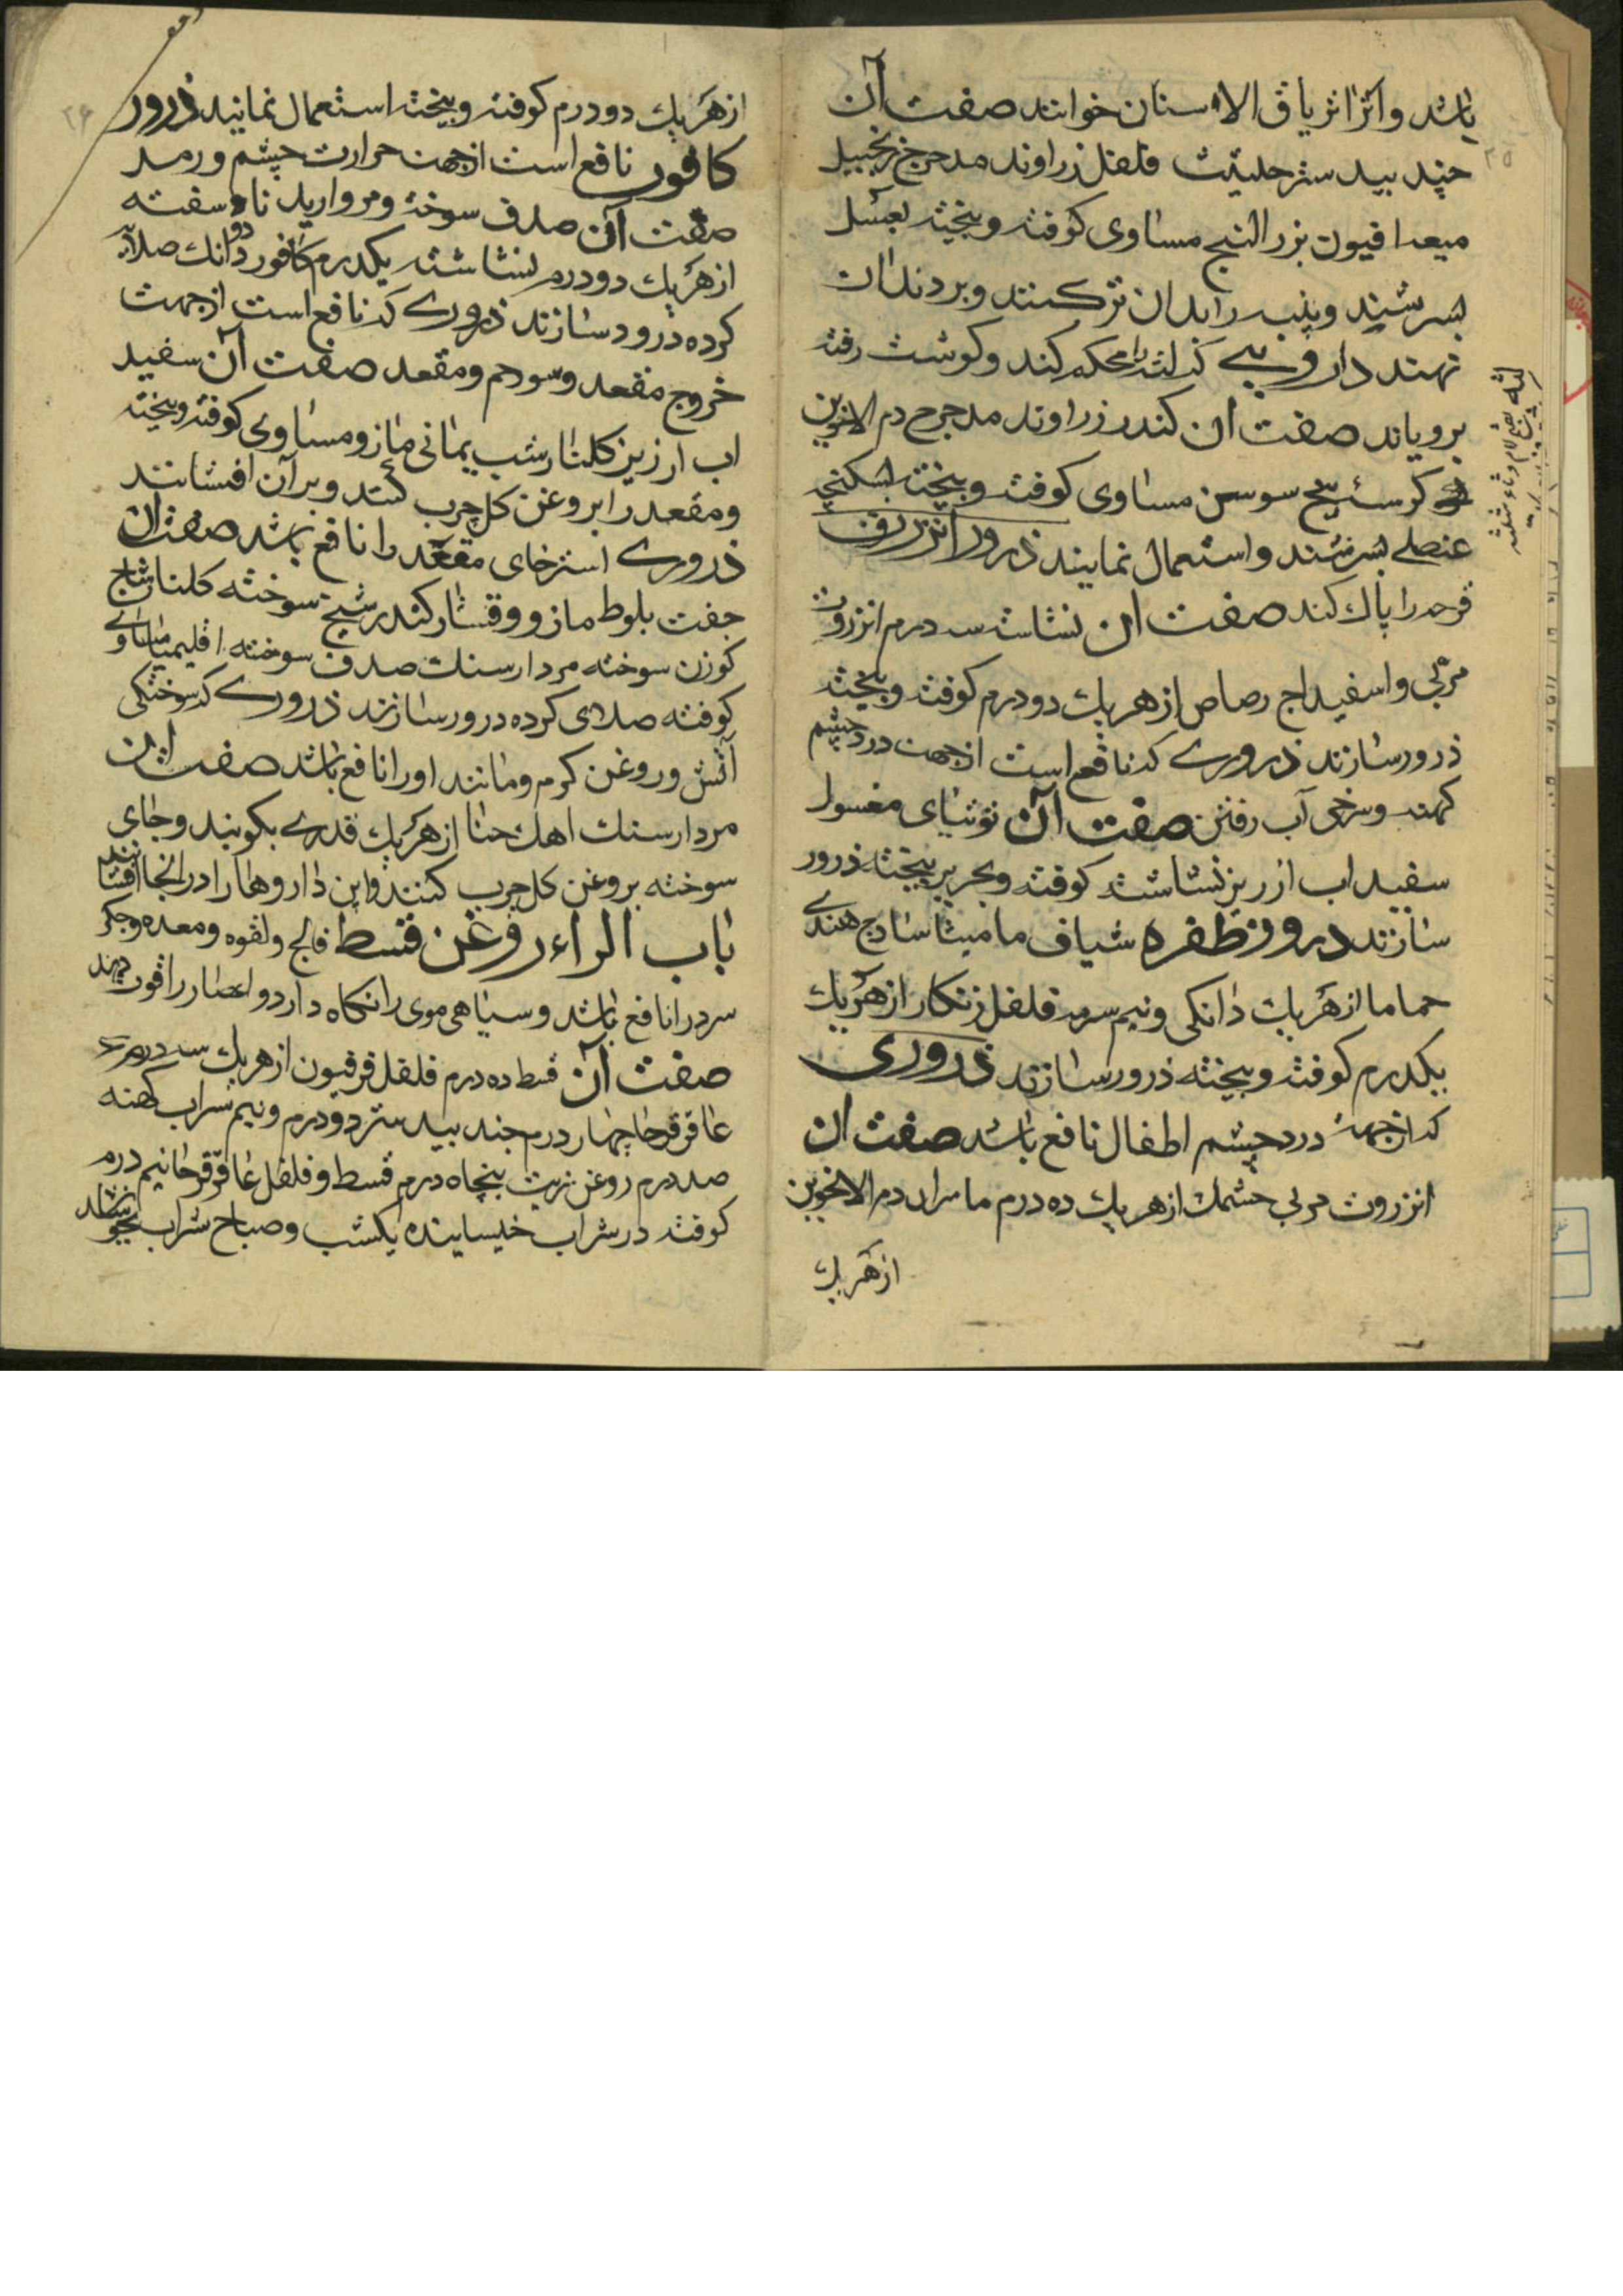 باشد و آنرا تریاق الاسنان خوانند صفت آن
جند بید ستر حلتیت فلفل زراوند مدحرج زنجبیل
میعه افیون بزر البنج مساوی کوفته و بیخته بعسل
بسرشند و پنبه را بدان تر کنند و بر دندان
نهند داروئی که لثه را محکم کند و کوشت رفته
برویاند صفت ان کندر زراوند مدحرج دم الاخوین
کرسنه بیخ سوسن مساوی کوفته و بیخته بسکنجبین
عنصلی بسرشند و استعمال نمایند ذرور انزروت
قرحه را پاک کند صفت ان نشاسته سه درم انزروت
مربی و اسفیداج رصاص از هر یک دو درم کوفته و بیخته
ذرور سازند ذروری که نافع است از جهت درد چشم
کهنه و سرخی آب رفتن صفت آن توتیای مغسول
سفیداب ارزیز نشاسته کوفته و بحریر بیخته ذرور
سازند ذرور ظفره شیاف مامیثا سادج هندی
حماما از هر یک دانکی و نیم سرمه فلفل زنکار از هر یک
یکدرم کوفته و بیخته ذرور سازند ذروری
که از جهت درد چشم اطفال نافع باشد صفت ان
انزروت مربی چشمک از هر یک ده درم مامیران دم الاخوین
از هر یک
لثه بضم لام و ثاء مثلثه
از هر یک دو درم کوفته و بیخته استعمال نمایند ذرور
کافور نافع است از جهت حرارت چشم و رمد
صفت آن صدف سوخته و مروارید ناسفته
از هر یک دو درم نشاسته یکدرم کافور دو دانک صلایه
کرده درور سازند ذروری که نافع است از جهت
خروج مقعد و سورم و مقعد صفت آن سفید
اب ارزیز کلنار شب یمانی مازو مساوی کوفته و بیخته
و مقعد را بروغن کل چرب کنند و بر آن افشانند
ذروری استرخای مقعد را نافع باشد صفت ان
جفت بلوط مازو و قشار کندر شیح سوخته کلنار شاخ
کوزن سوخته مردارسنک صدف سوخته اقلیمیا مساوی
کوفته صلای کرده درور سازند ذروری که سوختکی
آتش و روغن کرم و مانند اورا نافع باشد صفت ان
مردارسنک اهک حنا از هر یک قدری بکوبند و جای
سوخته بروغن کل چرب کنند و این داروها را در انجا افشانند
باب الراء روغن قسط فالج و لقوه و معده و جکر
سرد را نافع باشد و سیاهی موی را نکاه دارد و اعصار را قوت دهد
صفت آن قسط ده درم فلفل فرفیون از هر یک سه درم
عاقرقرحا چهار درم جند بید ستر دو درم و نیم شراب کهنه
صد درم روغن زیت پنجاه درم قسط و فلفل عاقرقرحا نیم درم
کوفته در شراب خیسانیده یکشب و صباح شراب بجوشانند